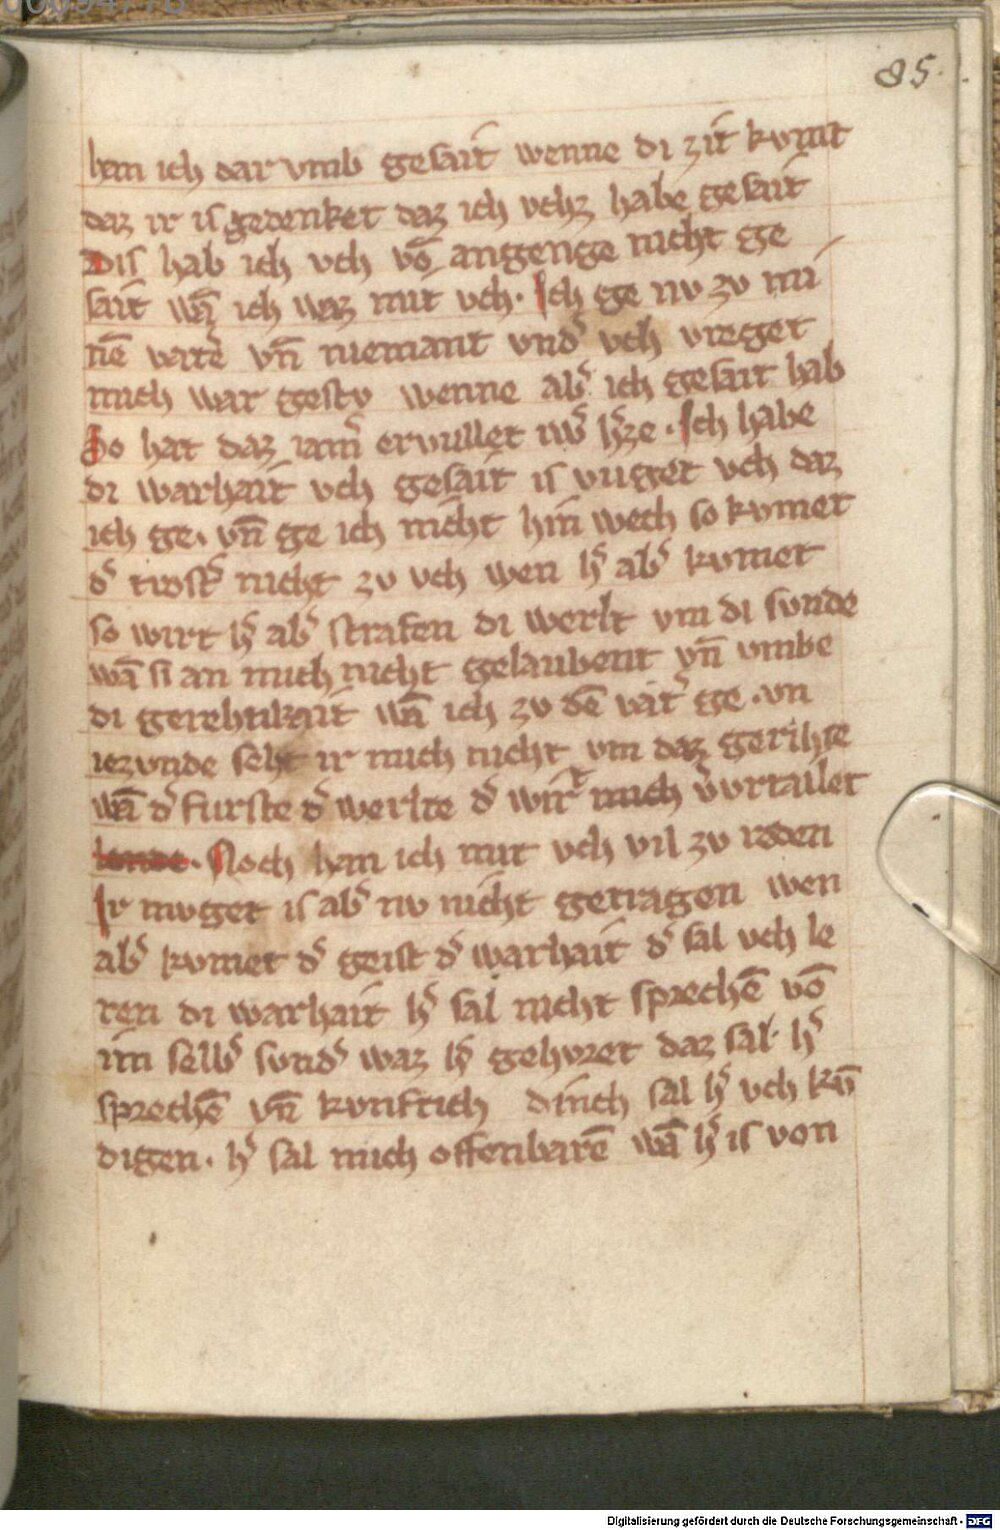 85.
han ich dar vmb gesait wenne di zit kvmt
daz ir is gedenket daz ich vchz habe gesait
Dis hab ich vch vō angenge nicht ge
sait wā ich waz mit vch. Ich ge nv zv mi
nē vatˀe vn̄ niemant vndˀ vch vreget
mich war gestv wenne abˀ ich gesait hab
So hat daz iamˀ ervullet iwˀ hˀze. Ich habe
di warhait vch gesait is vuget vch daz
ich ge. vn̄ ge ich nicht hin wech so kvmet
dˀ trostˀ nicht zv vch wen hˀ abˀ kvmet
so wirt hˀ abˀ strafen di werlt vm di svnde
wā si an mich nicht gelaubent vn̄ vmbe
di gerehtikait wā ich zv dē vatˀ ge. vn
iezvnde seht ir mich nicht vm daz gerihte
wā dˀ furste dˀ werlte dˀ wirt mich vˀvrtailet
Noch han ich mit vch vil zv reden
Ir mvget is abˀ nv nicht getragen wen
abˀ kvmet dˀ geist dˀ warhait dˀ sal vch le
ren di warhait hˀ sal nicht sprechē vō
im selbˀ svndˀ waz hˀ gehoret daz sal hˀ
sprechē vn̄ kvnftich dinch sal hˀ vch kv̄
digen. hˀ sal mich offenbarē wā hˀ is von
Digitalisierung gefördert durch die Deutsche Forschungsgemeinschaft - DFG